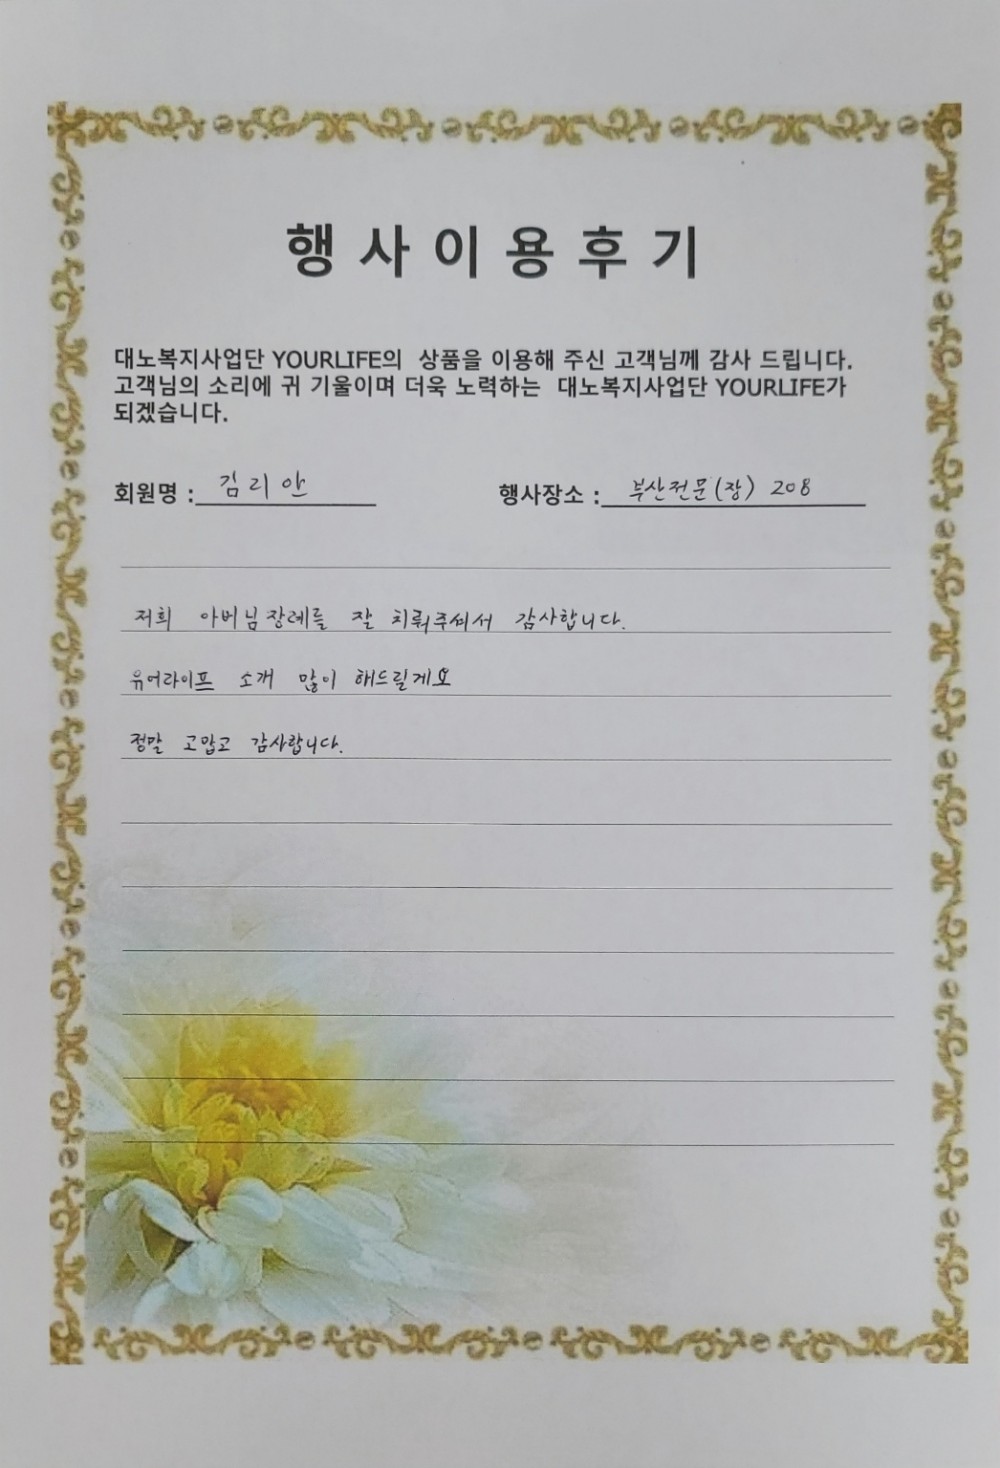 행사이용후기
대노복지사업단 YOURLIFE의 상품을 이용해 주신 고객님께 감사 드립니다.
고객님의 소리에 귀 기울이며 더욱 노력하는 대노복지사업단 YOURLIFE가
되겠습니다.
회원명 : 김리안 행사장소 : 부산전문(장) 208
저희 아버님장례를 잘 치뤄주셔서 감사합니다.
유어라이프 소개 많이 해드릴게요
정말 고맙고 감사합니다.